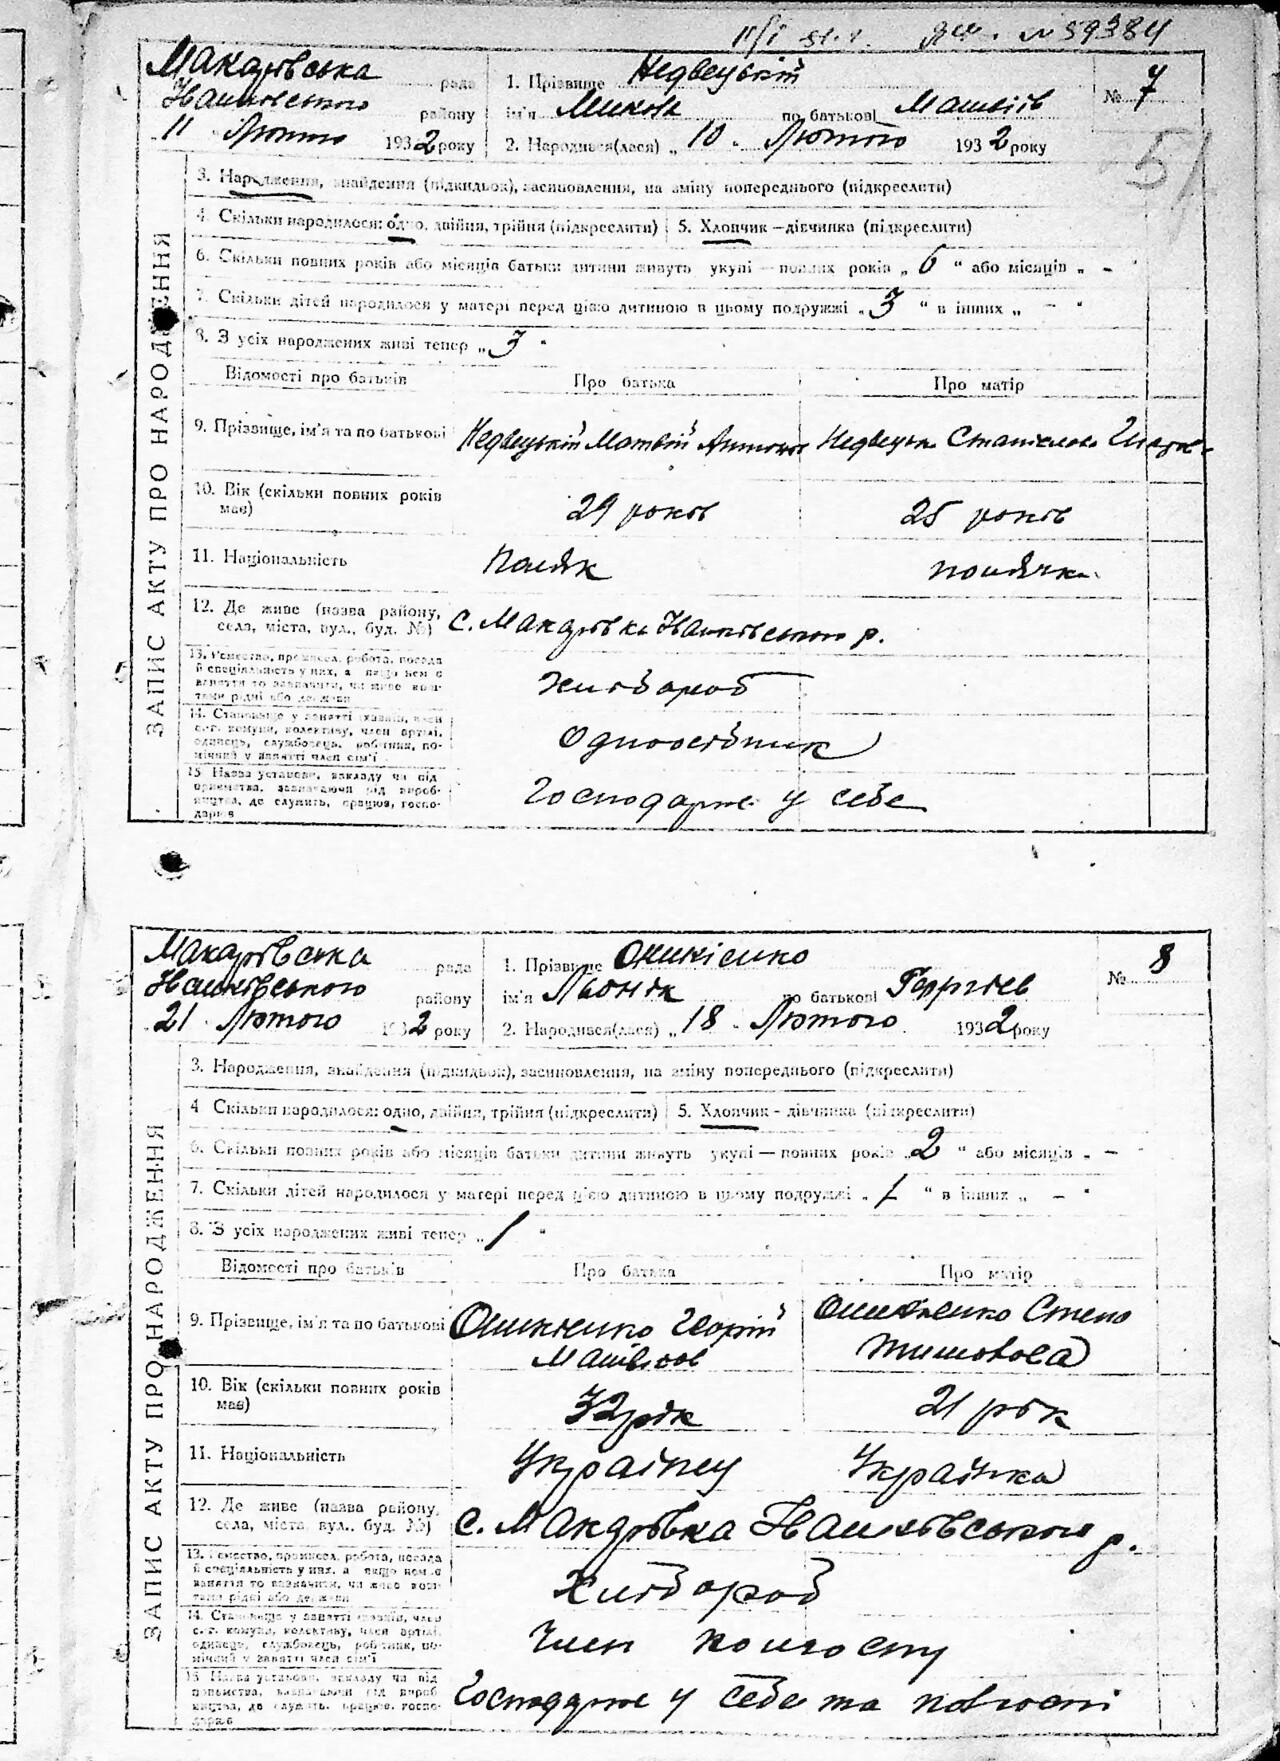 № 59384
51
Макарівська рада
району
11 Лютого 1932 року
1. Прізвище Недвецький
ім'я по батькові Матвіїв
2. Народився(лася) „ 10 " Лютого 1932 року
№ 7
ЗАПИС АКТУ ПРО НАРОДЖЕННЯ
3. Народження, знайдення (підкидьок), засиновлення, на зміну попереднього (підкреслити)
4. Скільки народилося: одно, двійня, трійня (підкреслити) 5. Хлопчик – дівчинка (підкреслити)
6. Скільки повних років або місяців батьки дитини живуть укупі — повних років „ 6 " або місяців „ – "
7. Скільки дітей народилося у матері перед цією дитиною в цьому подружжі „ 3 " в інших „ – "
8. З усіх народжених живі тепер „ 3 "
Відомості про батьків Про батька Про матір
9. Прізвище, ім'я та по батькові Недвецький Матвій Антонов Недвецька
10. Вік (скільки повних років має) 29 років 25 років
11. Національність Поляк полячка
12. Де живе (назва району, села, міста, вул., буд. №) с. Макарівка р.
13. Ремество, промисел, робота, посада й спеціальність у них, а якщо нема заняття то зазначити, чи живе коштами рідні або держави
Хлібороб
14. Становище у занятті (хазяїн, член с.-г. комуни, колективу, член артілі, одинець, службовець, робітник, помічний у занятті член сім'ї
Одноосібник
15. Назва установи, закладу чи підприємства, зазначаючи рід виробництва, де служить, працює, господарює
Господарює у себе
Макарівська рада
району
21 Лютого 1932 року
1. Прізвище Оникієнко
ім'я Льонік по батькові Георгіїв
2. Народився(лася) „ 18 " Лютого 1932 року
№ 8
ЗАПИС АКТУ ПРО НАРОДЖЕННЯ
3. Народження, знайдення (підкидьок), засиновлення, на зміну попереднього (підкреслити)
4 Скільки народилося: одно, двійня, трійня (підкреслити) 5. Хлопчик - дівчинка (підкреслити)
6. Скільки повних років або місяців батьки дитини живуть укупі — повних років „ 2 " або місяців „ – "
7. Скільки дітей народилося у матері перед цією дитиною в цьому подружжі „ 1 " в інших „ – "
8. З усіх народжених живі тепер „ 1 "
Відомості про батьків Про батька Про матір
9. Прізвище, ім'я та по батькові Оникієнко Георгій Матвієв Оникієнко
10. Вік (скільки повних років має) 32 рік 21 рік
11. Національність Українец Українка
12. Де живе (назва району, села, міста, вул., буд. №) с. Макарівка р.
13. Ремество, промисел, робота, посада й спеціальність у них, а якщо нема заняття то зазначити, чи живе коштами рідні або держави
Хлібороб
14. Становище у занятті (хазяїн, член с.-г. комуни, колективу, член артілі, одинець, службовець, робітник, помічний у занятті член сім'ї
Член колгоспу
15 Назва установи, закладу чи підприємства, зазначаючи рід виробництва, де служить, працює, господарює
Господарює у себе та колгоспі